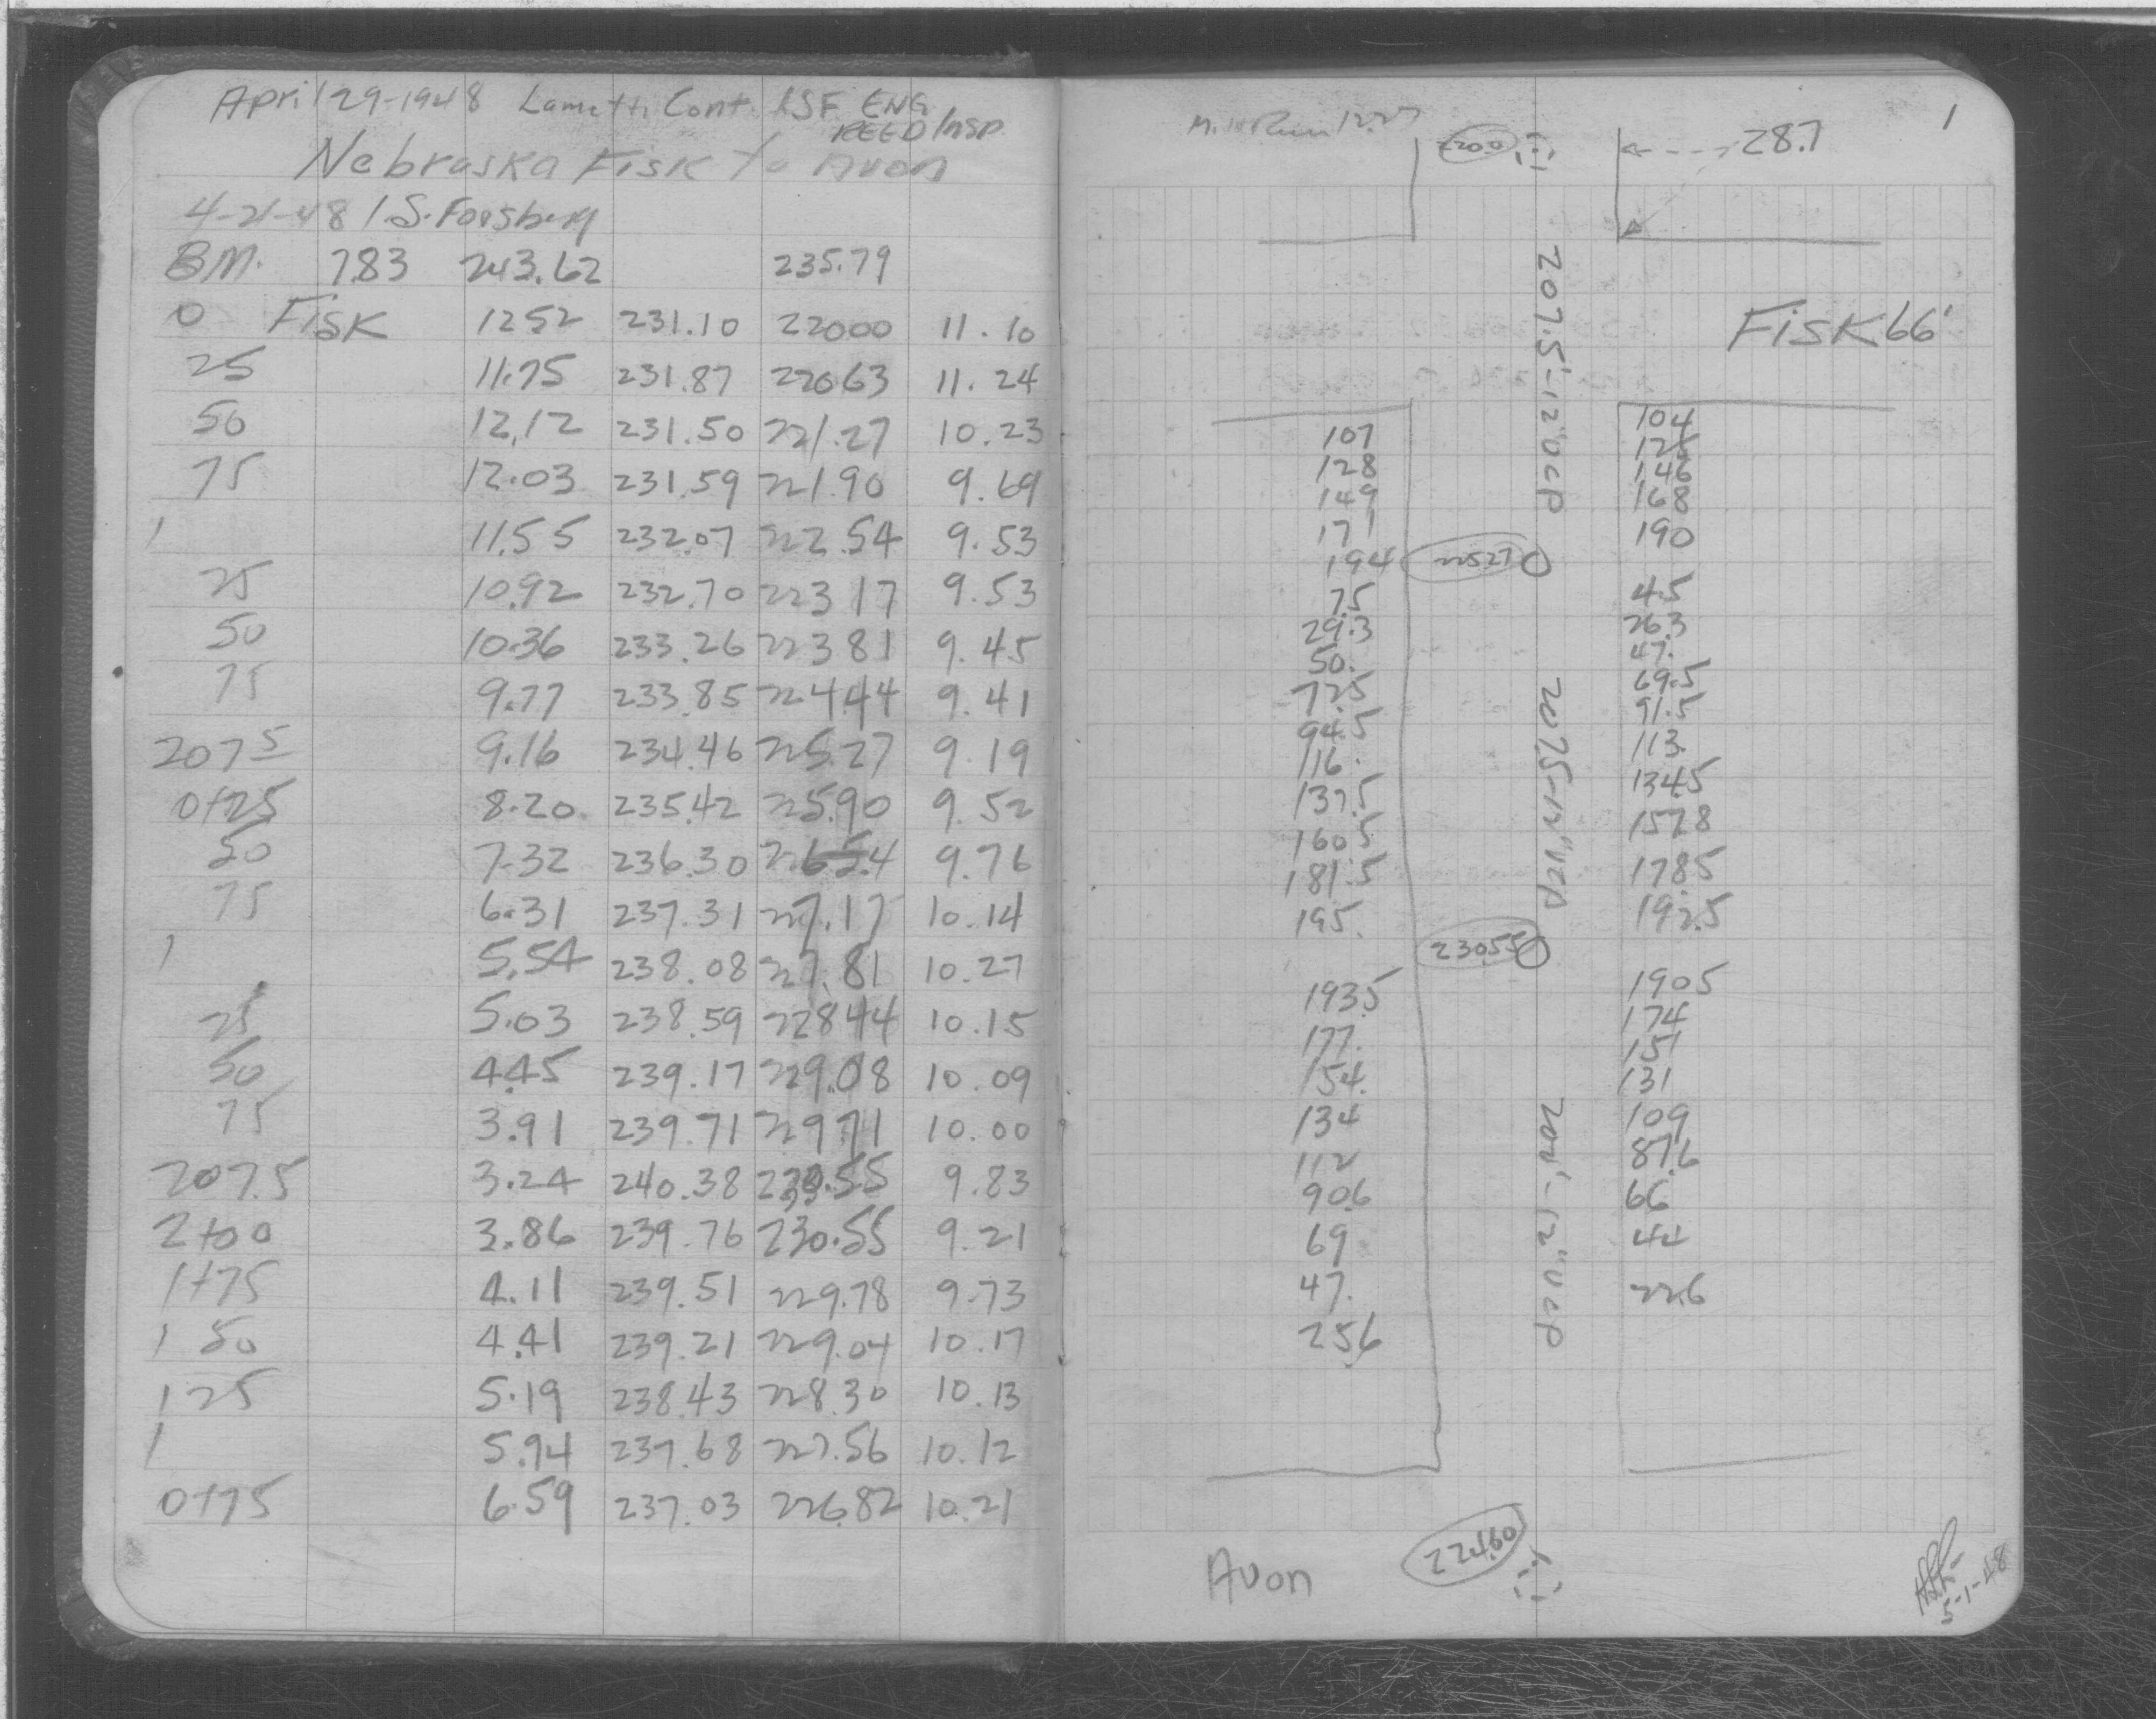 April 29-1948 Lametti Cont. LSF ENG
REED INSP
Nebraska Fisk to Avon
4-21-48 / S. Forsberg
BM. 7.83 243.62 235.79
0 Fisk 12.52 231.10 220.00 11.10
25 11.75 231.87 220.63 11.24
50 12.12 231.50 221.27 10.23
75 12.03 231.59 221.90 9.69
1 11.55 232.07 222.54 9.53
25 10.92 232.70 223.17 9.53
50 10.36 233.26 223.81 9.45
75 9.77 233.85 224.44 9.41
207 5 9.16 234.46 225.27 9.19
0+25 8.20 235.42 225.90 9.52
50 7.32 236.30 226.54 9.76
75 6.31 237.31 227.17 10.14
1 5.54 238.08 227.81 10.27
25 5.03 238.59 228.44 10.15
50 4.45 239.17 229.08 10.09
75 3.91 239.71 229.71 10.00
207.5 3.24 240.38 230.55 9.83
2+00 3.86 239.76 230.55 9.21
1+75 4.11 239.51 229.78 9.73
1 50 4.41 239.21 229.04 10.17
1 25 5.19 238.43 228.30 10.13
1 5.94 237.68 227.56 10.12
0+75 6.59 237.03 226.82 10.21
1
28.7
Fisk 66'
207.5'-12" VCP
107 104
128 125
149 146
171 168
194 225.27 190
7.5 4.5
29.3 26.3
50. 47.
72.5 69.5
94.5 91.5
116. 113.
137.5 134.5
160.5 157.8
181.5 178.5
195. 192.5
207.5-12" VCP
230.55
193.5 190.5
177. 174
154. 151
134 131
112 109
90.6 87.6
69 66
47. 44
25.6 22.6
200'-12" VCP
Avon 224.60
5-1-48